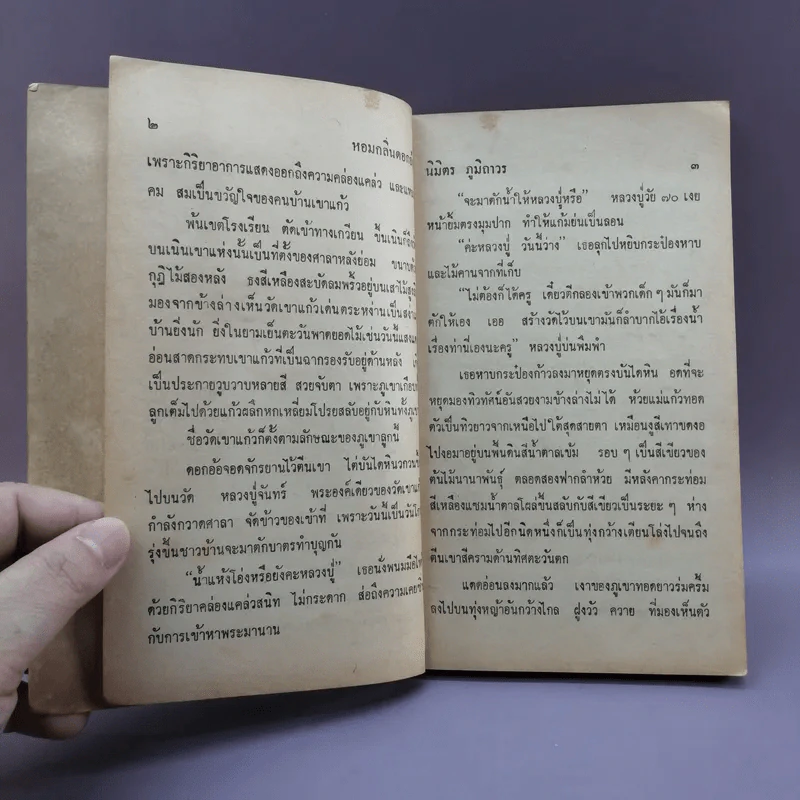 ๒
หอมกลิ่นดอก
เพราะกิริยาอาการแสดงออกถึงความคล่องแคล่ว และ
คม สมเป็นขวัญใจของคนบ้านเขาแก้ว
พ้นเขตโรงเรียน ตัดเข้าทางเกวียน ขึ้นเนินก็
บนเนินเขาแห่งนั้นเป็นที่ตั้งของศาลาหลังย่อม ขนาบ
กุฏิไม้สองหลัง ธงสีเหลืองสะบัดลมพริ้วอยู่บนเสาไม้สูง
มองจากข้างล่างเห็นวัดเขาแก้วเด่นตระหง่านเป็นสง่า
บ้านยิ่งนัก ยิ่งในยามเย็นตะวันพาดยอดไม้เช่นวันนี้แสง
อ่อนสาดกระทบเขาแก้วที่เป็นฉากรองรับอยู่ด้านหลัง
เป็นประกายวูบวาบหลายสี สวยจับตา เพราะภูเขาเกือบ
ลูกเต็มไปด้วยแก้วผลึกหกเหลี่ยมโปรยสลับอยู่กับหินทั้งภูเขา
ชื่อวัดเขาแก้วก็ตั้งตามลักษณะของภูเขาลูกนี้
ดอกอ้อจอดจักรยานไว้ตีนเขา ไต่บันไดหินวกวน
ไปบนวัด หลวงปู่จันทร์ พระองค์เดียวของวัดเขา
กำลังกวาดศาลา จัดข้าวของเข้าที่ เพราะวันนี้เป็นวันโกน
รุ่งขึ้นชาวบ้านจะมาตักบาตรทำบุญกัน
“น้ำแห้งโอ่งหรือยังคะหลวงปู่” เธอนั่งพนมมือ
ด้วยกิริยาคล่องแคล่วสนิท ไม่กระดาก ส่อถึงความเคยชิน
กับการเข้าหาพระมานาน
นิมิตร ภูมิถาวร
๓
“จะมาตักน้ำให้หลวงปู่หรือ” หลวงปู่วัย ๗๐ เงย
หน้ายิ้มตรงมุมปาก ทำให้แก้มย่นเป็นลอน
“ค่ะหลวงปู่ วันนี้ว่าง” เธอลุกไปหยิบกระป๋องหาบ
และไม้คานจากที่เก็บ
“ไม่ต้องก็ได้ครู เดี๋ยวตีกลองเข้าพวกเด็ก ๆ มันก็มา
ตักให้เอง เออ สร้างวัดไว้บนเขามันก็ลำบากไอ้เรื่องน้ำ
เรื่องท่านี่เองนะครู” หลวงปู่บ่นพึมพำ
เธอหาบกระป๋องก้าวลงมาหยุดตรงบันไดหิน อดที่จะ
หยุดมองทิวทัศน์อันสวยงามข้างล่างไม่ได้ ห้วยแม่แก้วทอด
ตัวเป็นทิวยาวจากเหนือไปใต้สุดสายตา เหมือนงูสีเทาขดงอ
ไปงอมาอยู่บนพื้นดินสีน้ำตาลเข้ม รอบ ๆ เป็นสีเขียวของ
ต้นไม้นานาพันธุ์ ตลอดสองฟากลำห้วย มีหลังคากระท่อม
สีเหลืองแซมน้ำตาลโผล่ขึ้นสลับกับสีเขียวเป็นระยะ ๆ ห่าง
จากกระท่อมไปอีกนิดหนึ่งก็เป็นทุ่งกว้างเตียนโล่งไปจนถึง
ตีนเขาสีครามด้านทิศตะวันตก
แดดอ่อนลงมากแล้ว เงาของภูเขาทอดยาวร่มครึ้ม
ลงไปบนทุ่งหญ้าอันกว้างไกล ฝูงวัว ควาย ที่มองเห็นตัว